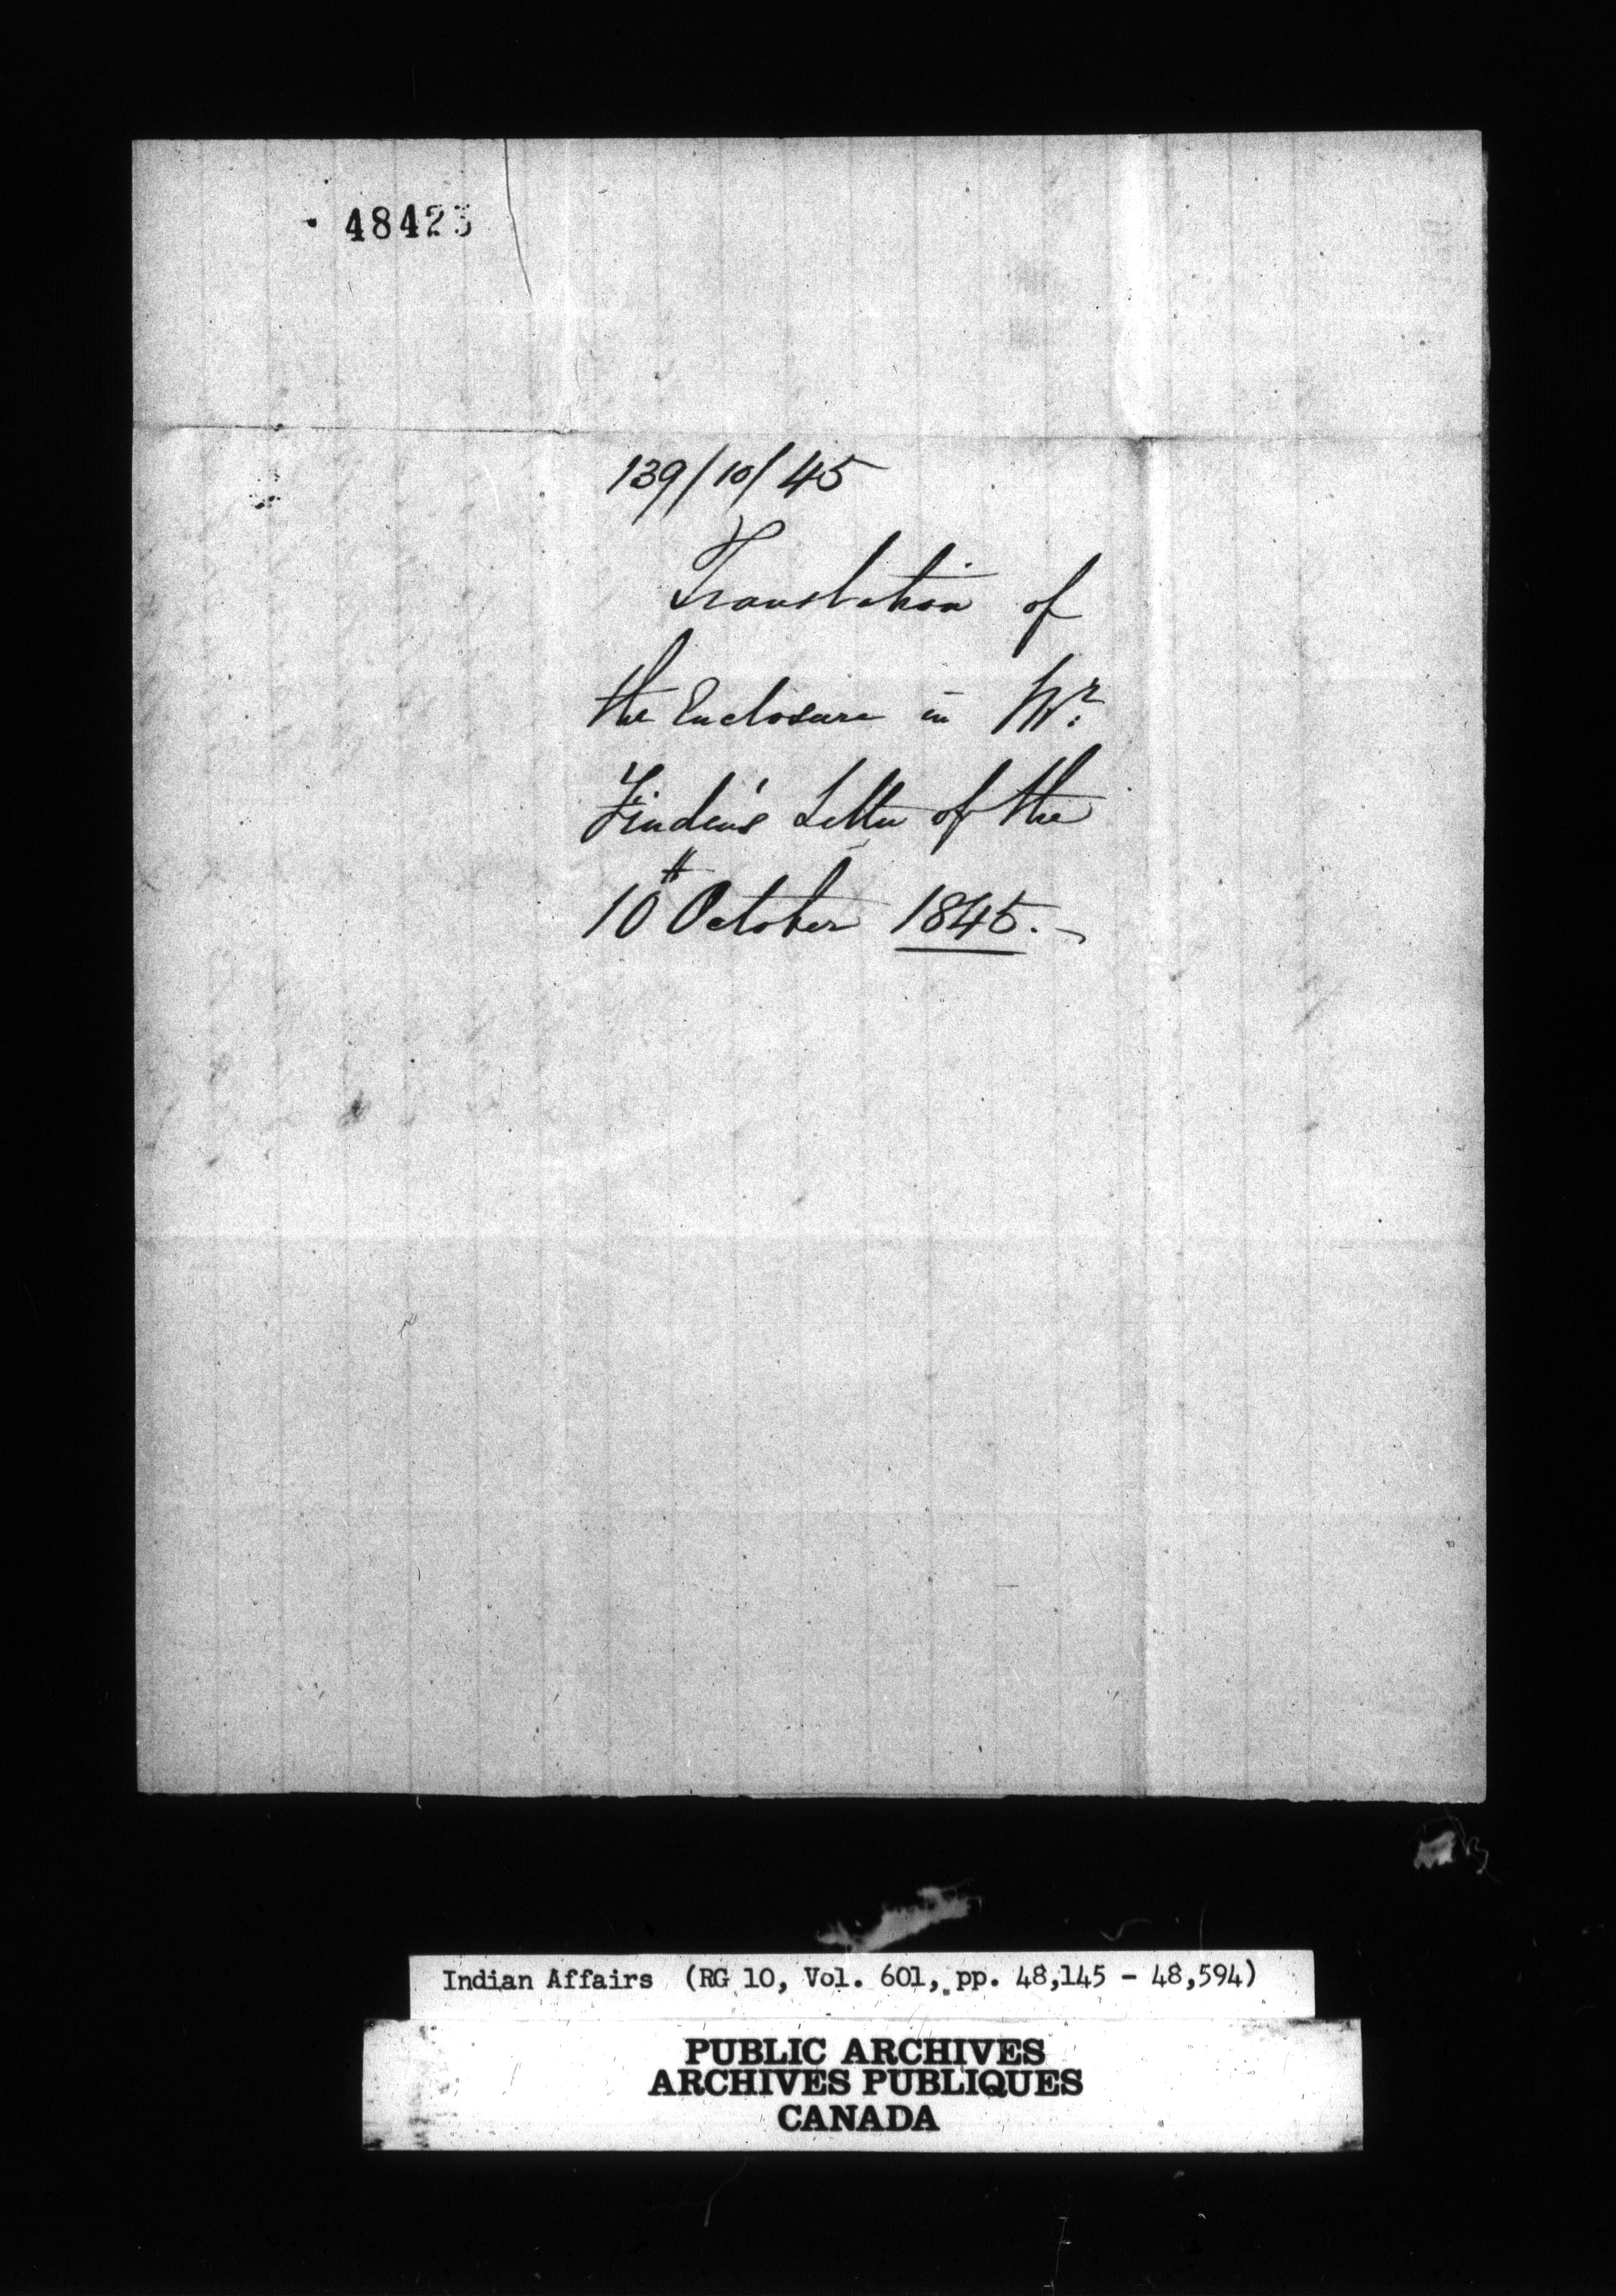 48423
139/10/45
Translation of
the Enclosure in Mr.
Linden's Letter of the
10th October 1845.
Indian Affairs (RG 10, Vol. 601, pp. 48,145 - 48,594)
PUBLIC ARCHIVES
ARCHIVES PUBLIQUES
CANADA